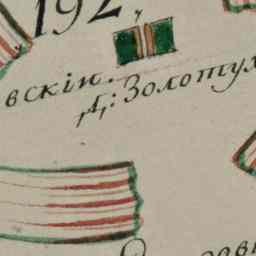 192
вскіи.
Д: Золотух